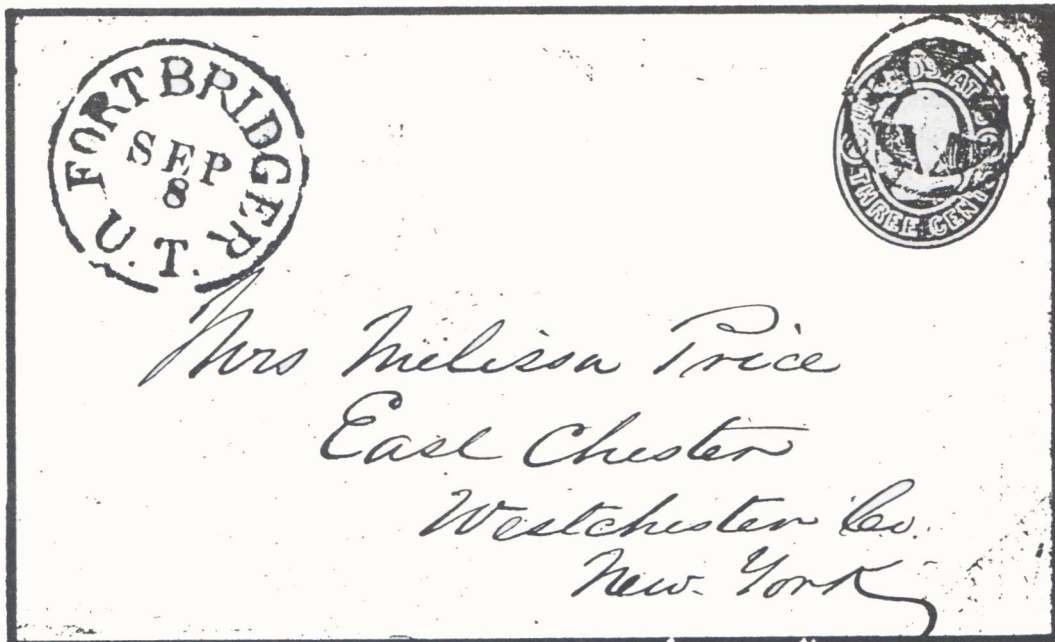 FORT BRIDGER
SEP
8
U.T.
THREE CENTS
Mrs Melissa Price
East Chester
Westchester Co.
New-York